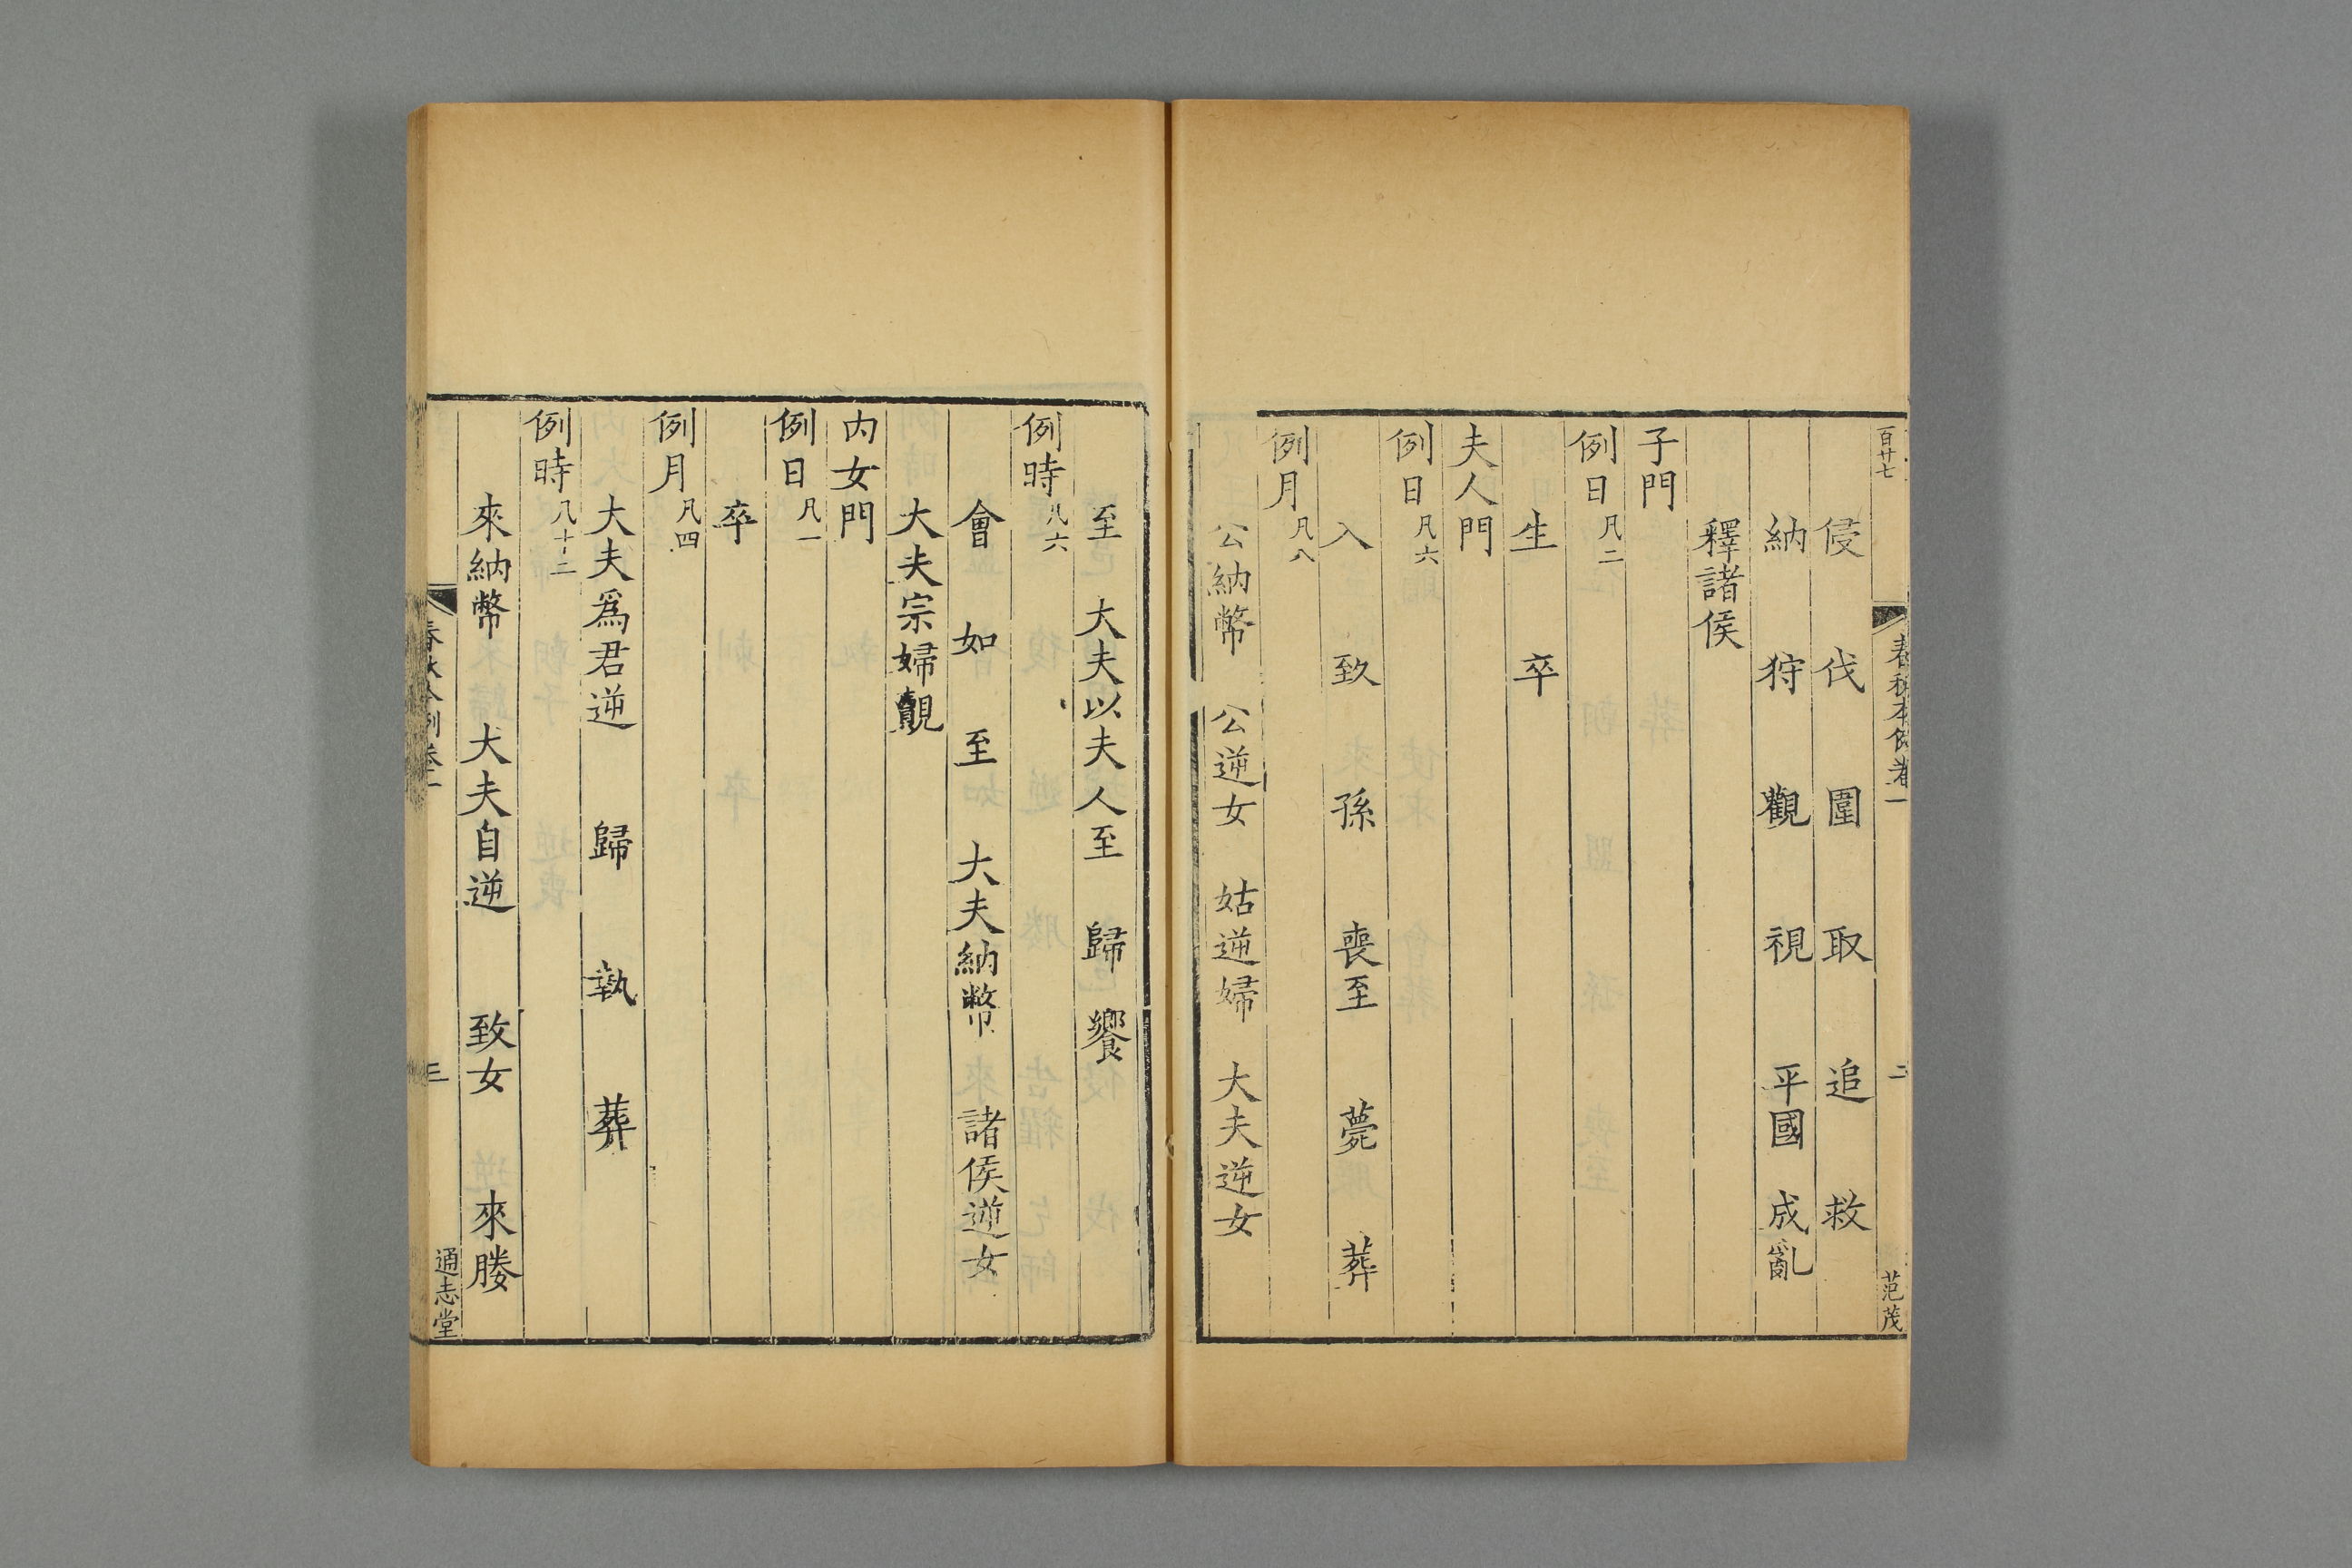 百廿七
春秋本例卷一
二
范茂
侵 伐 圍 取 追 救
納 狩 觀 視 平國 成亂
釋諸侯
子門
例日凡二
生 卒
夫人門
例日凡六
入 致 孫 喪至 薨 葬
例月凡八
公納幣 公逆女 姑逆婦 大夫逆女
至 大夫以夫人至 歸 饗
例時凡六
會 如 至 大夫納幣 諸侯逆女
大夫宗婦覿
内女門
例日凡一
卒
例月凡四
大夫爲君逆 歸 執 葬
例時凡十二
來納幣 大夫自逆 致女 來媵
三
通志堂